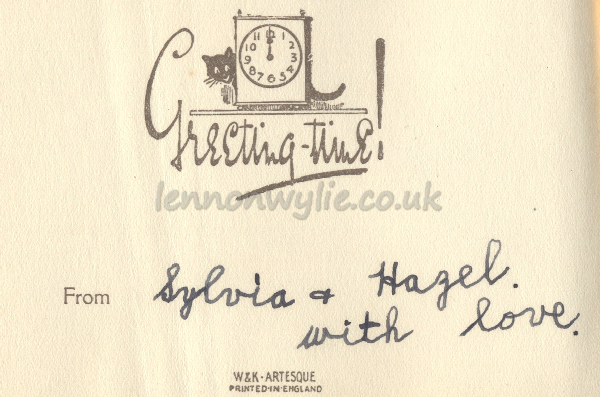 11 12 1
10 2
9 3
8 4
7 6 5
Greeting-time!
lennonwylie.co.uk
From Sylvia + Hazel.
with love.
W&K-ARTESQUE
PRINTED·IN·ENGLAND